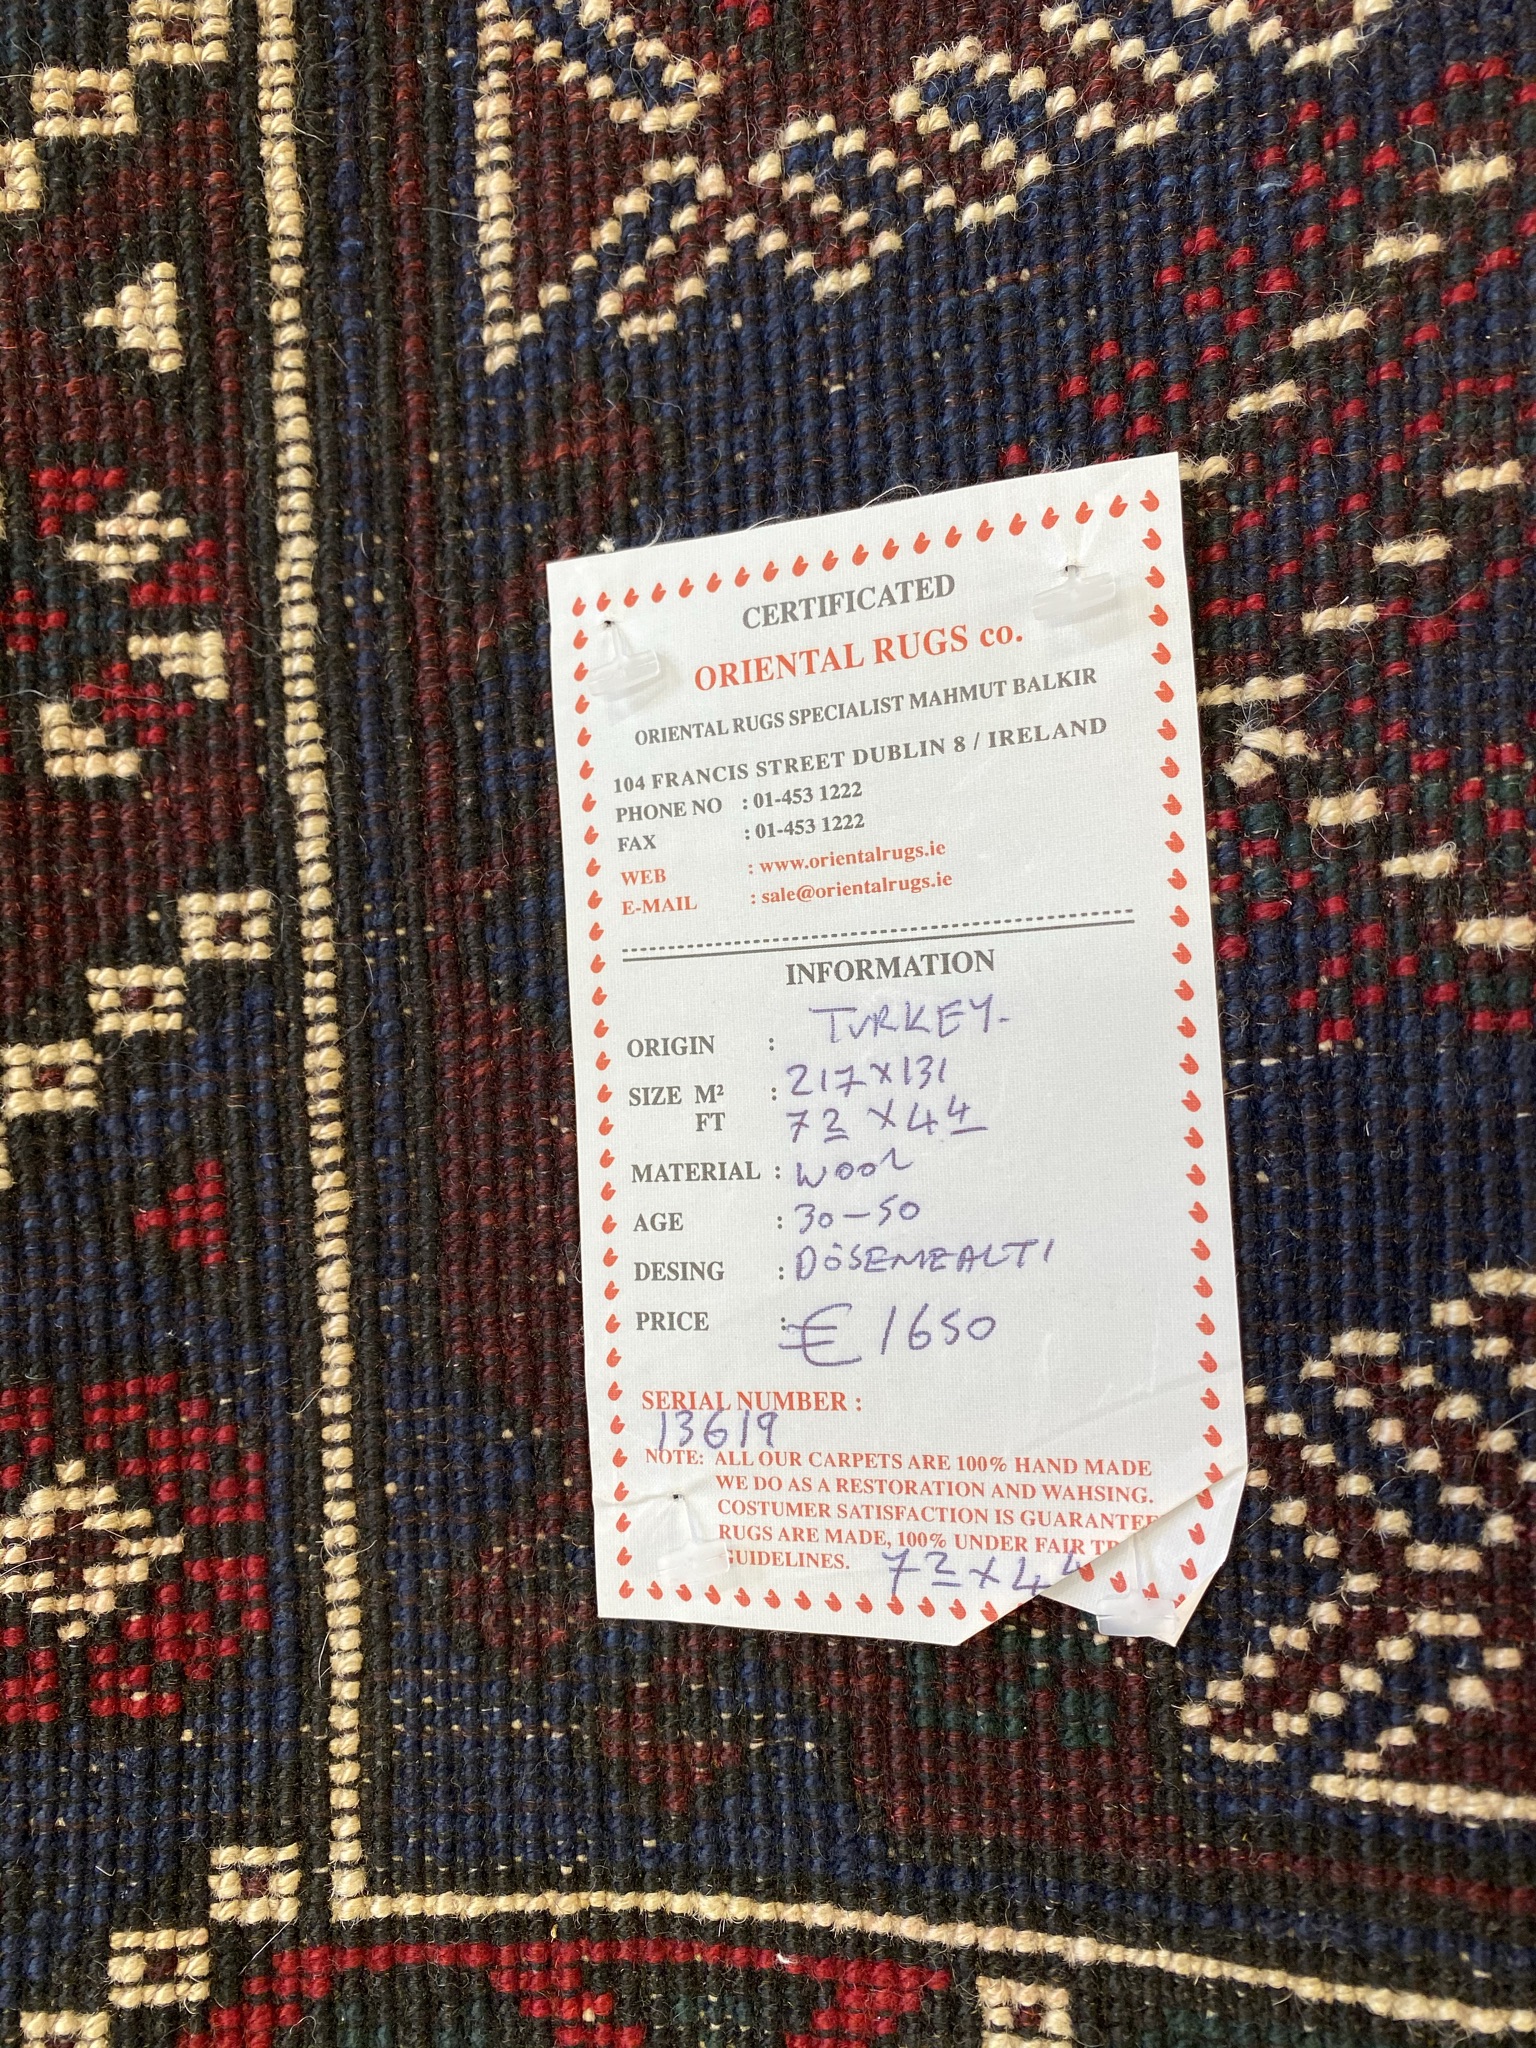 CERTIFICATED
ORIENTAL RUGS co.
ORIENTAL RUGS SPECIALIST MAHMUT BALKIR
104 FRANCIS STREET DUBLIN 8 / IRELAND
PHONE NO : 01-453 1222
FAX : 01-453 1222
WEB : www.orientalrugs.ie
E-MAIL : sale@orientalrugs.ie
INFORMATION
ORIGIN : TURKEY-
SIZE M² : 217x131
FT 72 x 44
MATERIAL : WOOL
AGE : 30-50
DESING : DÖSEMEALTI
PRICE : € 1650
SERIAL NUMBER :
13619
NOTE: ALL OUR CARPETS ARE 100% HAND MADE
WE DO AS A RESTORATION AND WAHSING.
COSTUMER SATISFACTION IS GUARANTEE
RUGS ARE MADE, 100% UNDER FAIR TR
GUIDELINES. 72x44